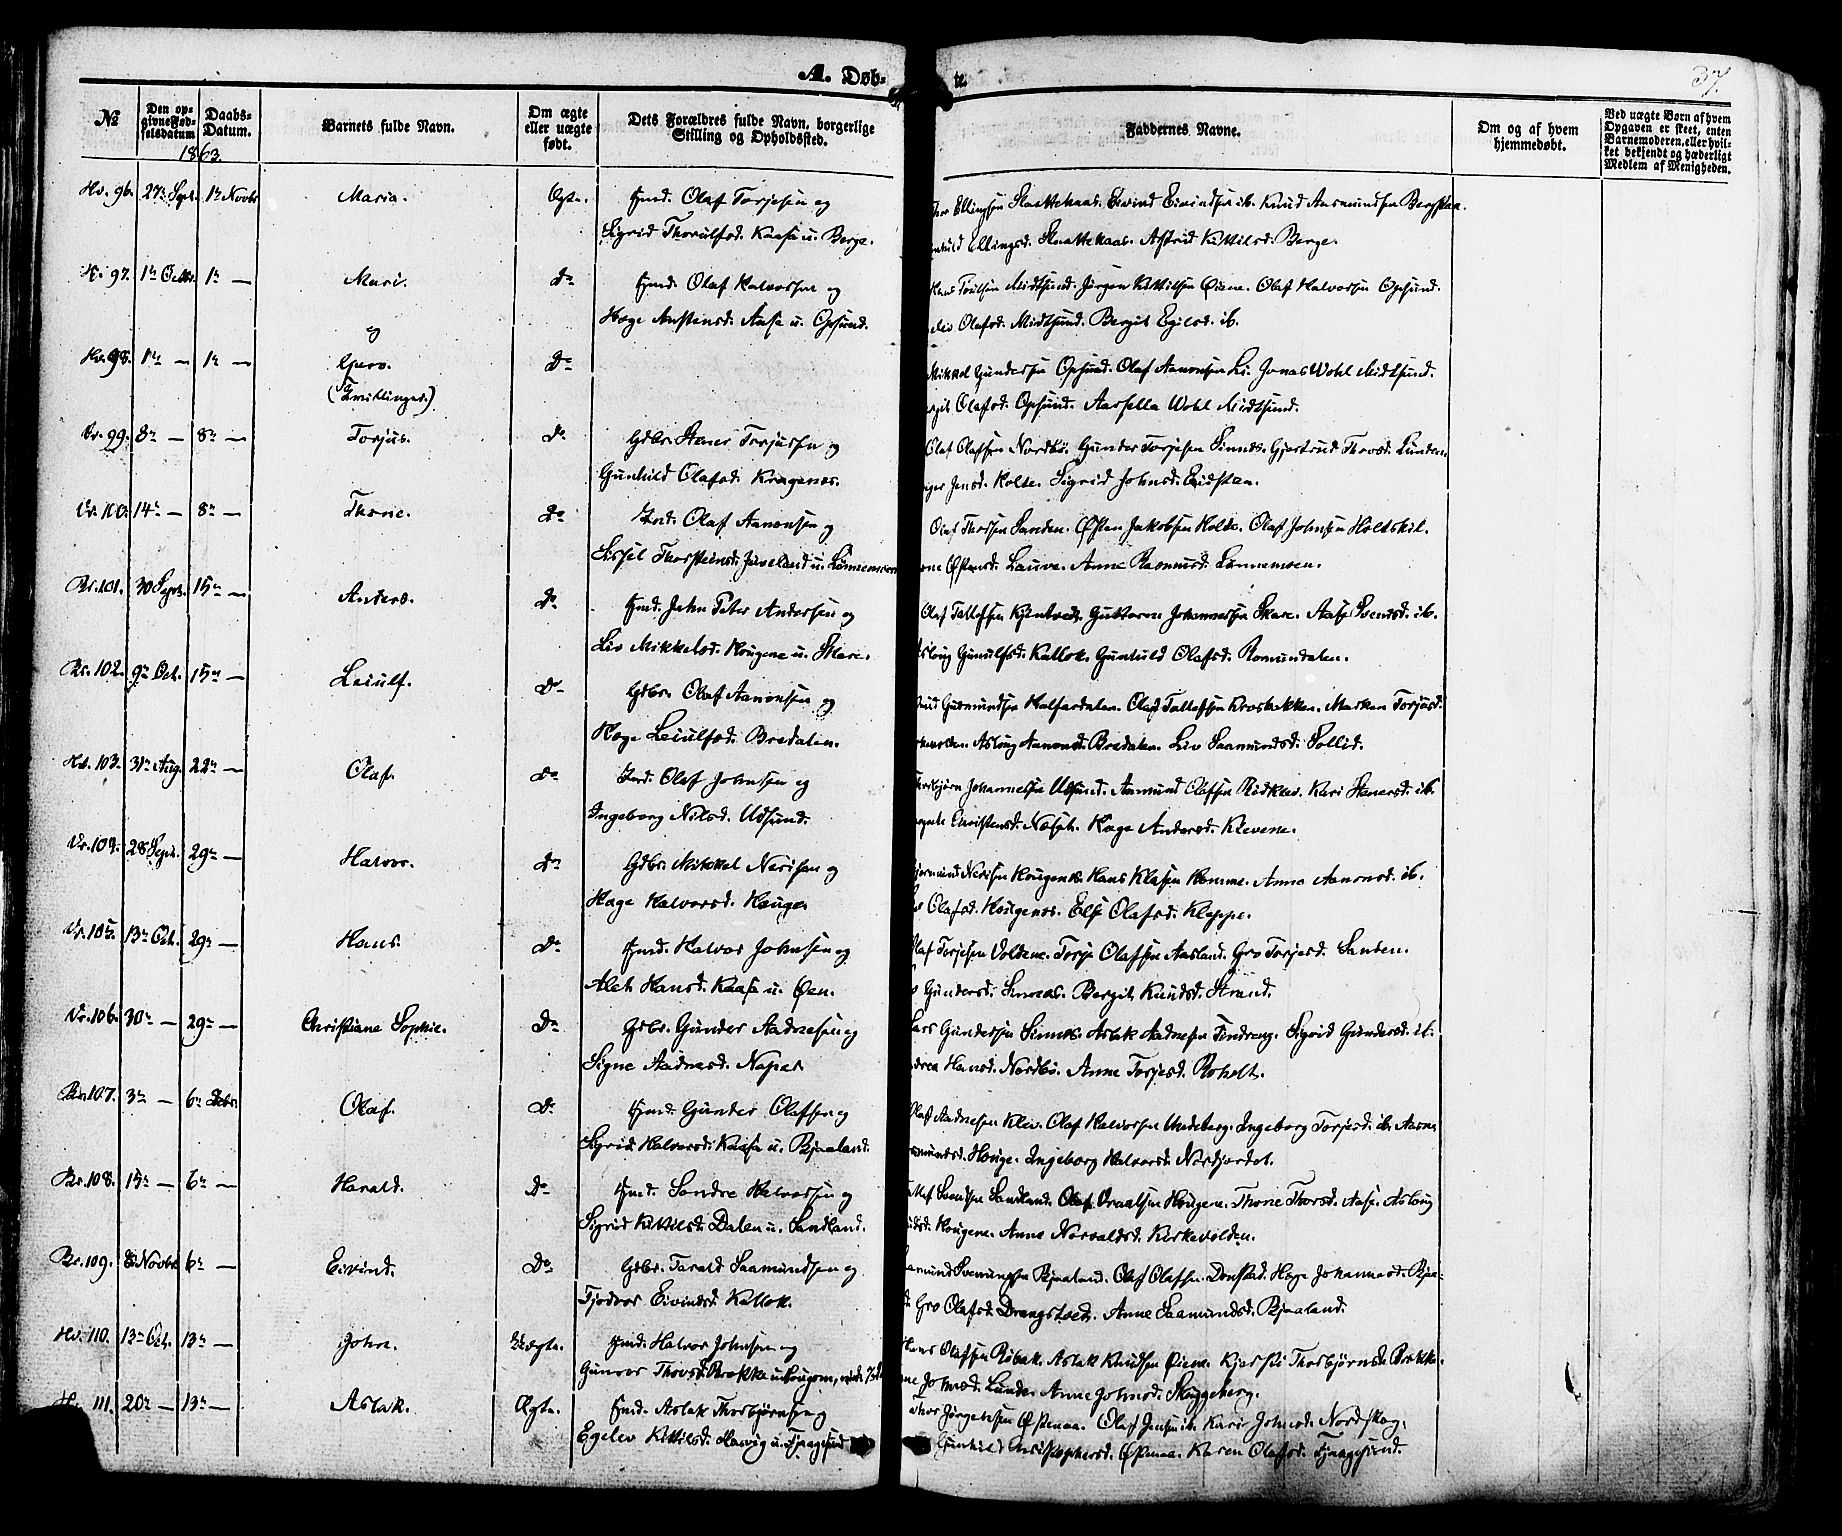 A. Døb-
te.
37.
No
Den op-
givne Fød-
selsdatum
Daabs-
Datum.
Barnets fulde Navn.
Om ægte
eller uægte
født.
Dets Forældres fulde Navn, borgerlige
Stilling og Opholdssted.
Faddernes Navne.
Om og af hvem
hjemmedøbt.
Ved uægte Børn af hvem
Opgaven er skeet, enten
Barnemoderen, eller hvil-
ket bekjendt og hæderligt
Medlem af Menigheden.
1863.
Hv. 96. 27de Sept. 1ste Novbr Maria. Ægte. Hmd. Olaf Torjesen og
Sigrid Thorulfsd. Kaasa u. Berge.
Thor Ellingsen Slaattekaas. Eivind Eivindsen ib. Knud Aasmundsen
Ellingsd. Slaattekaas. Astrid Kittilsd. Berge.
97. 1ste Octbr. 1ste — Mari. Do Hmd. Olaf Halvorsen og
Hæge Austensd. Aase u. Opsund.
Midtsund. Jørgen Kittilsen Øiene. Olaf Halvorsen Opsund.
Liv Olafsd. Midtsund. Bergit Egilsd. ib.
og
Hv. 98. 1ste — 1ste — Gjero. Do
(Tvillinger.)
Mikkel Gundersen Opsund. Olaf Aanonsen Li. Jonas Wohl Midtsund.
Olafsd. Opsund. Wohl Midtsund.
99. 8de — 8de — Torjus. Do Gdbr. Torjussen og
Gunhild Olafsd. Kragenæs.
Olaf Olafsen Nordbø. Gunder Torjesen Sinnes. Gjertrud Thovsd. Lunden.
Jensd. Holte. Sigrid Johnsd. Eidstaa.
100. 14de — 8de — Thone. Do Ind. Olaf Aanonsen og
Sissel Thorsteinsd. Javeland u. Lønnemoen
Olaf Thorsen Sanden. Østen Jakobsen Holte. Olaf Johnsen Holtskil.
Østensd. Lauve. Anne Rasmusd. Lønnemoen.
101. 30 Sept. 15de — Anders. Do Hmd. John Peter Andersen og
Liv Mikkelsd. Hougene u. Skare.
Olaf Tallefsen Guttorm Johannessen Skare. Aase Svendsd. ib.
Asloug Gunulfsd. Kallok. Gunhild Olafsd. Romundalen.
102. 9de Oct. 15de — Leiulf. Do Gdbr. Olaf Aanonsen og
Hæge Leiulfsd. Bredalen.
Gurmundsen Halferdalen. Olaf Tallefsen Krosbekken. Marken Torjusd.
Asloug Aanonsd. Bredalen. Liv Saamundsd. Sollid.
Hv. 103. 31te Aug. 22de — Olaf. Do Inds. Olaf Johnsen og
Ingeborg Nilsd. Udsund.
Thorbjørn Johannessen Udsund. Aanund Olafsen Kari Steners­d. ib.
Christensd. Næset. Hæge Andersd. Klevene.
104. 28 Sept. 29de — Halvor. Do Gdbr. Mikkel Nerisen og
Hæge Halvorsd. Houge.
Gjermund Nerisen Hougen. Hans Klasen Homme. Anne Aanonsd. ib.
Olafsd. Hougen. Else Olafsd. Kleppe.
105. 13de Oct. 29de — Hans. Do Hmd. Halvor Johnsen og
Alet Hansd. Kaasa u. Øen.
Olaf Torjesen Voldene. Torje Olafsen Aasland. Gro Torjesd. Sanden.
Gundersd. Sinnes. Bergit Knudsd. Strand.
106. 30te — 29de — Christiane Sophie. Do Gdbr. Gunder Aadnesen og
Signe Aadnesd. Naper
Lars Gundersen Sinnes. Aslak Aadnesen Tindreng. Sigrid Gundersd. ib.
Hansd. Nordbø. Anne Torjesd. Roholt.
107. 3de — 6te Decbr. Olaf. Do Hmd. Gunder Olafsen og
Sigrid Halvorsd. Kaasa u. Bjaaland.
Olaf Aadnesen Klev. Olaf Halvorsen Undeberg. Ingeborg Torjesd. ib.
Houge. Ingeborg Halvorsd. Nordjordet.
108. 15de — 6te — Harald. Do Hmd. Sondre Halvorsen og
Sigrid Kittilsd. Dalen u. Sandland.
Svendsen Sandland. Olaf Vraalsen Hougene. Thone Thorsd. Aase. Asloug
Hougene. Anne Norvaldsd. Kirkevolden.
109. 8 Novbr 6te — Eivind. Do Gdbr. Tarald Saamundsen og
Tjodvor Eivindsd. Kallok.
Saamund Svenningsen Bjaaland. Olaf Olafsen Donstad. Hæge Johannesd. Bjaa-
Gro Olafsd. Drangstvet. Anne Saamundsd. Bjaaland.
Hv. 110. 13de Oct. 13de — John. Uægte. Hmd. Halvor Johnsen og
Gunvor Thovsd. Brekke
Hans Olafsen Røbæk. Aslak Knudsen Øiene. Kjersti Thorbjørnsd. Brekke
Johnsd. Lunde. Anne Johnsd. Skuggeberg.
111. 20de — 13de — Aslak. Ægte. Hmd. Aslak Thorbjørnsen og
Egelev Kittilsd. u. Tjaagesund
Thor Jørgensen Østenaa. Olaf Jensen ib. Kari Johnsd. Nordskog.
Gunhild Christophersd. Østenaa. Karen Olafsd. Tjaagesund.